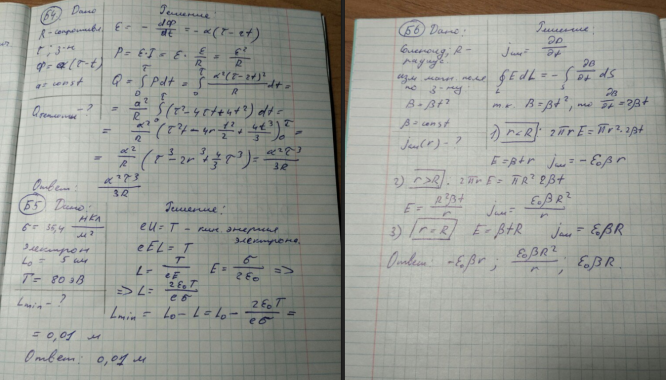 Б4 Дано
R - сопротив.
τ; з-н
Ф = α(τ-t)
α = const
Qтепло - ?
Решение:
E = - dФ/dt = -α(τ-2t)
P = E·I = E · E/R = E²/R
Q = ∫₀^τ Pdt = ∫₀^τ α²(τ-2t)²/R dt =
= α²/R ∫₀^τ (τ² - 4τt + 4t²) dt =
= α²/R (τ²t - 4τ t²/2 + 4t³/3)₀^τ =
= α²/R (τ³ - 2τ³ + 4/3 τ³) = α²τ³/3R
Ответ: α²τ³/3R
Б5 Дано:
σ = 35,4 нКл/м²
электрон
L₀ = 5 см
T = 80 эВ
Lmin - ?
Решение:
eU = T - кин. энергия
электрона.
eEL = T
L = T/eE E = σ/2ε₀ =>
=> L = 2ε₀T/eσ
Lmin = L₀ - L = L₀ - 2ε₀T/eσ =
= 0,01 м
Ответ: 0,01 м
Б6 Дано:
Соленоид, R -
радиус
магн. поле
по з-ну
B = βt²
β = const
jсм(r) - ?
Решение:
jсм = ∂D/∂t
∮ E dL = - ∫ ∂B/∂t dS
т.к. B = βt², то ∂B/∂t = 2βt
1) r < R: 2πrE = πr²·2βt
E = βtr jсм = -ε₀βr
2) r > R: 2πrE = πR²2βt
E = R²βt/r jсм = ε₀βR²/r
3) r = R E = βtR jсм = ε₀βR
Ответ: -ε₀βr; ε₀βR²/r; ε₀βR.